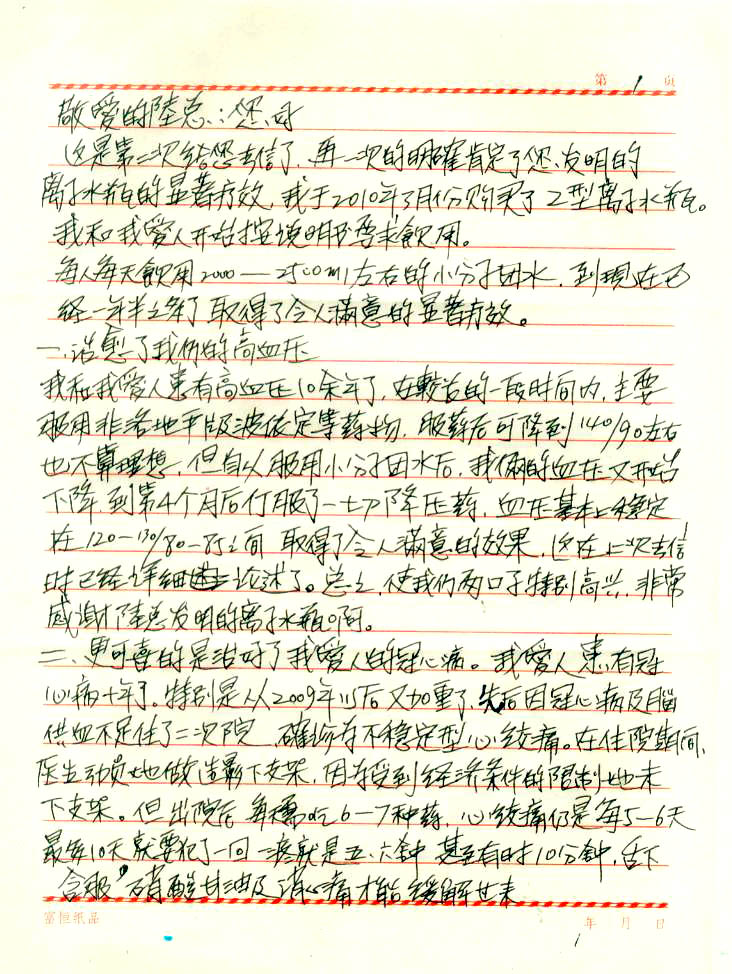 第 1 页
敬愛的陸总：您好
这是第二次给您去信了，再一次的明確肯定了您发明的
离子水瓶的显著疗效，我于2010年3月份购买了Z型离子水瓶。
我和我愛人开始按说明书要求飲用。
每人每天飲用2000—2500ml左右的小分子团水，到現在已
经一年半多了取得了令人滿意的显著疗效。
一、治愈了我俩的高血圧
我和我愛人患有高血圧10余年了，在較长的一段时间内，主要
服用非洛地平 等葯物，服葯后可降到140/90左右
也不算理想，但自从服用小分子团水后，我俩的血圧又开始
下降，到第4个月后 降圧葯，血圧基本上稳定
在120—130/80—85之间 取得了令人滿意的效果，这在上次去信
时已经详细 论述了。总之，使我们两口子特别高兴，非常
感谢陸总发明的离子水瓶啊。
二、更可喜的是治好了我愛人的冠心病。我愛人患有冠
心病十年了。特别是从2009年以后又加重了，先后因冠心病及腦
供血不足住了二次院，確诊为不稳定型心绞痛。在住院期间，
医生动员她做造影下支架，因为受到经济条件的限制她未
下支架。但出院后 每天需吃6—7种葯，心绞痛仍是每5—6天
最多10天就要犯了一回 一疼就是五、六分钟 甚至有时10分钟，舌下
含服 硝酸甘油及消心痛才能缓解过来
富恒纸品 年 月 日